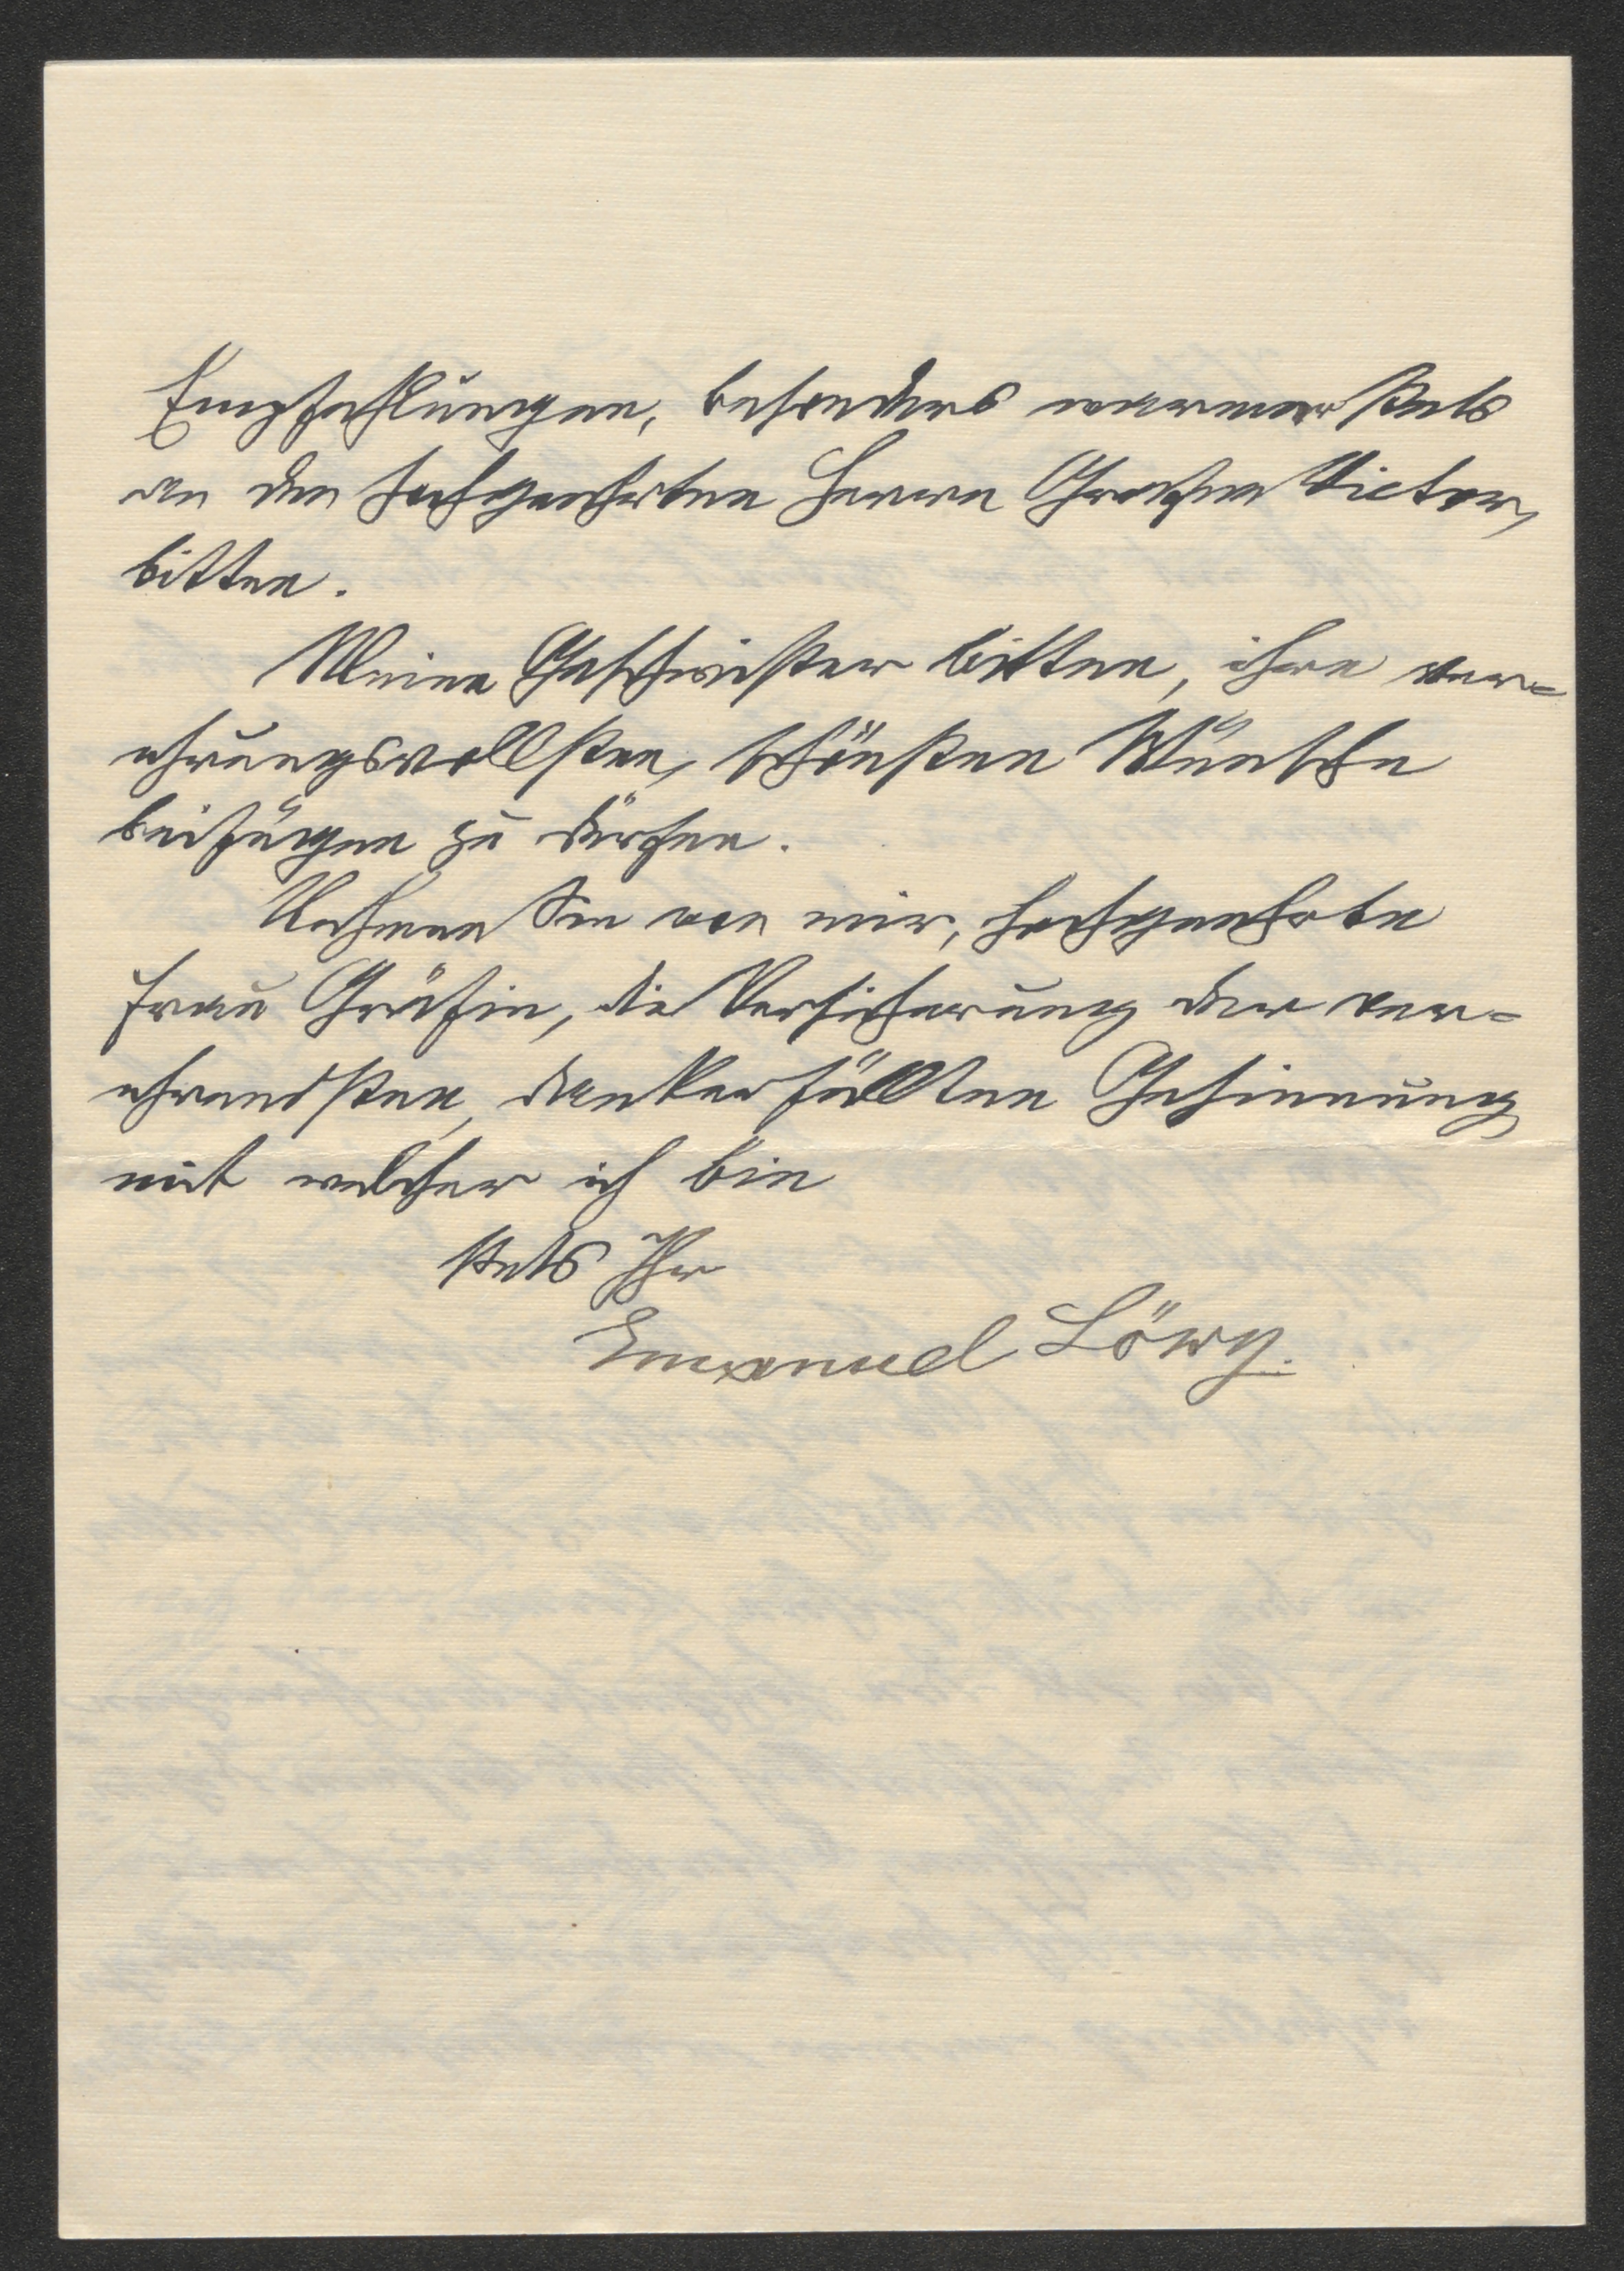 Empfehlungen, besonders warmer stets
an den hochgeehrten Herrn Grafen Victor,
bitten.
Meine Geschwister bitten, ihre ver=
ehrungsvollsten, schönsten Wünsche
beifügen zu dürfen.
Nehmen Sie von mir, hochgeehrte
Frau Gräfin, die Versicherung der ver=
ehrendsten, dankerfüllten Gesinnung
mit welcher ich bin
stets Ihr
Emanuel Löwy.